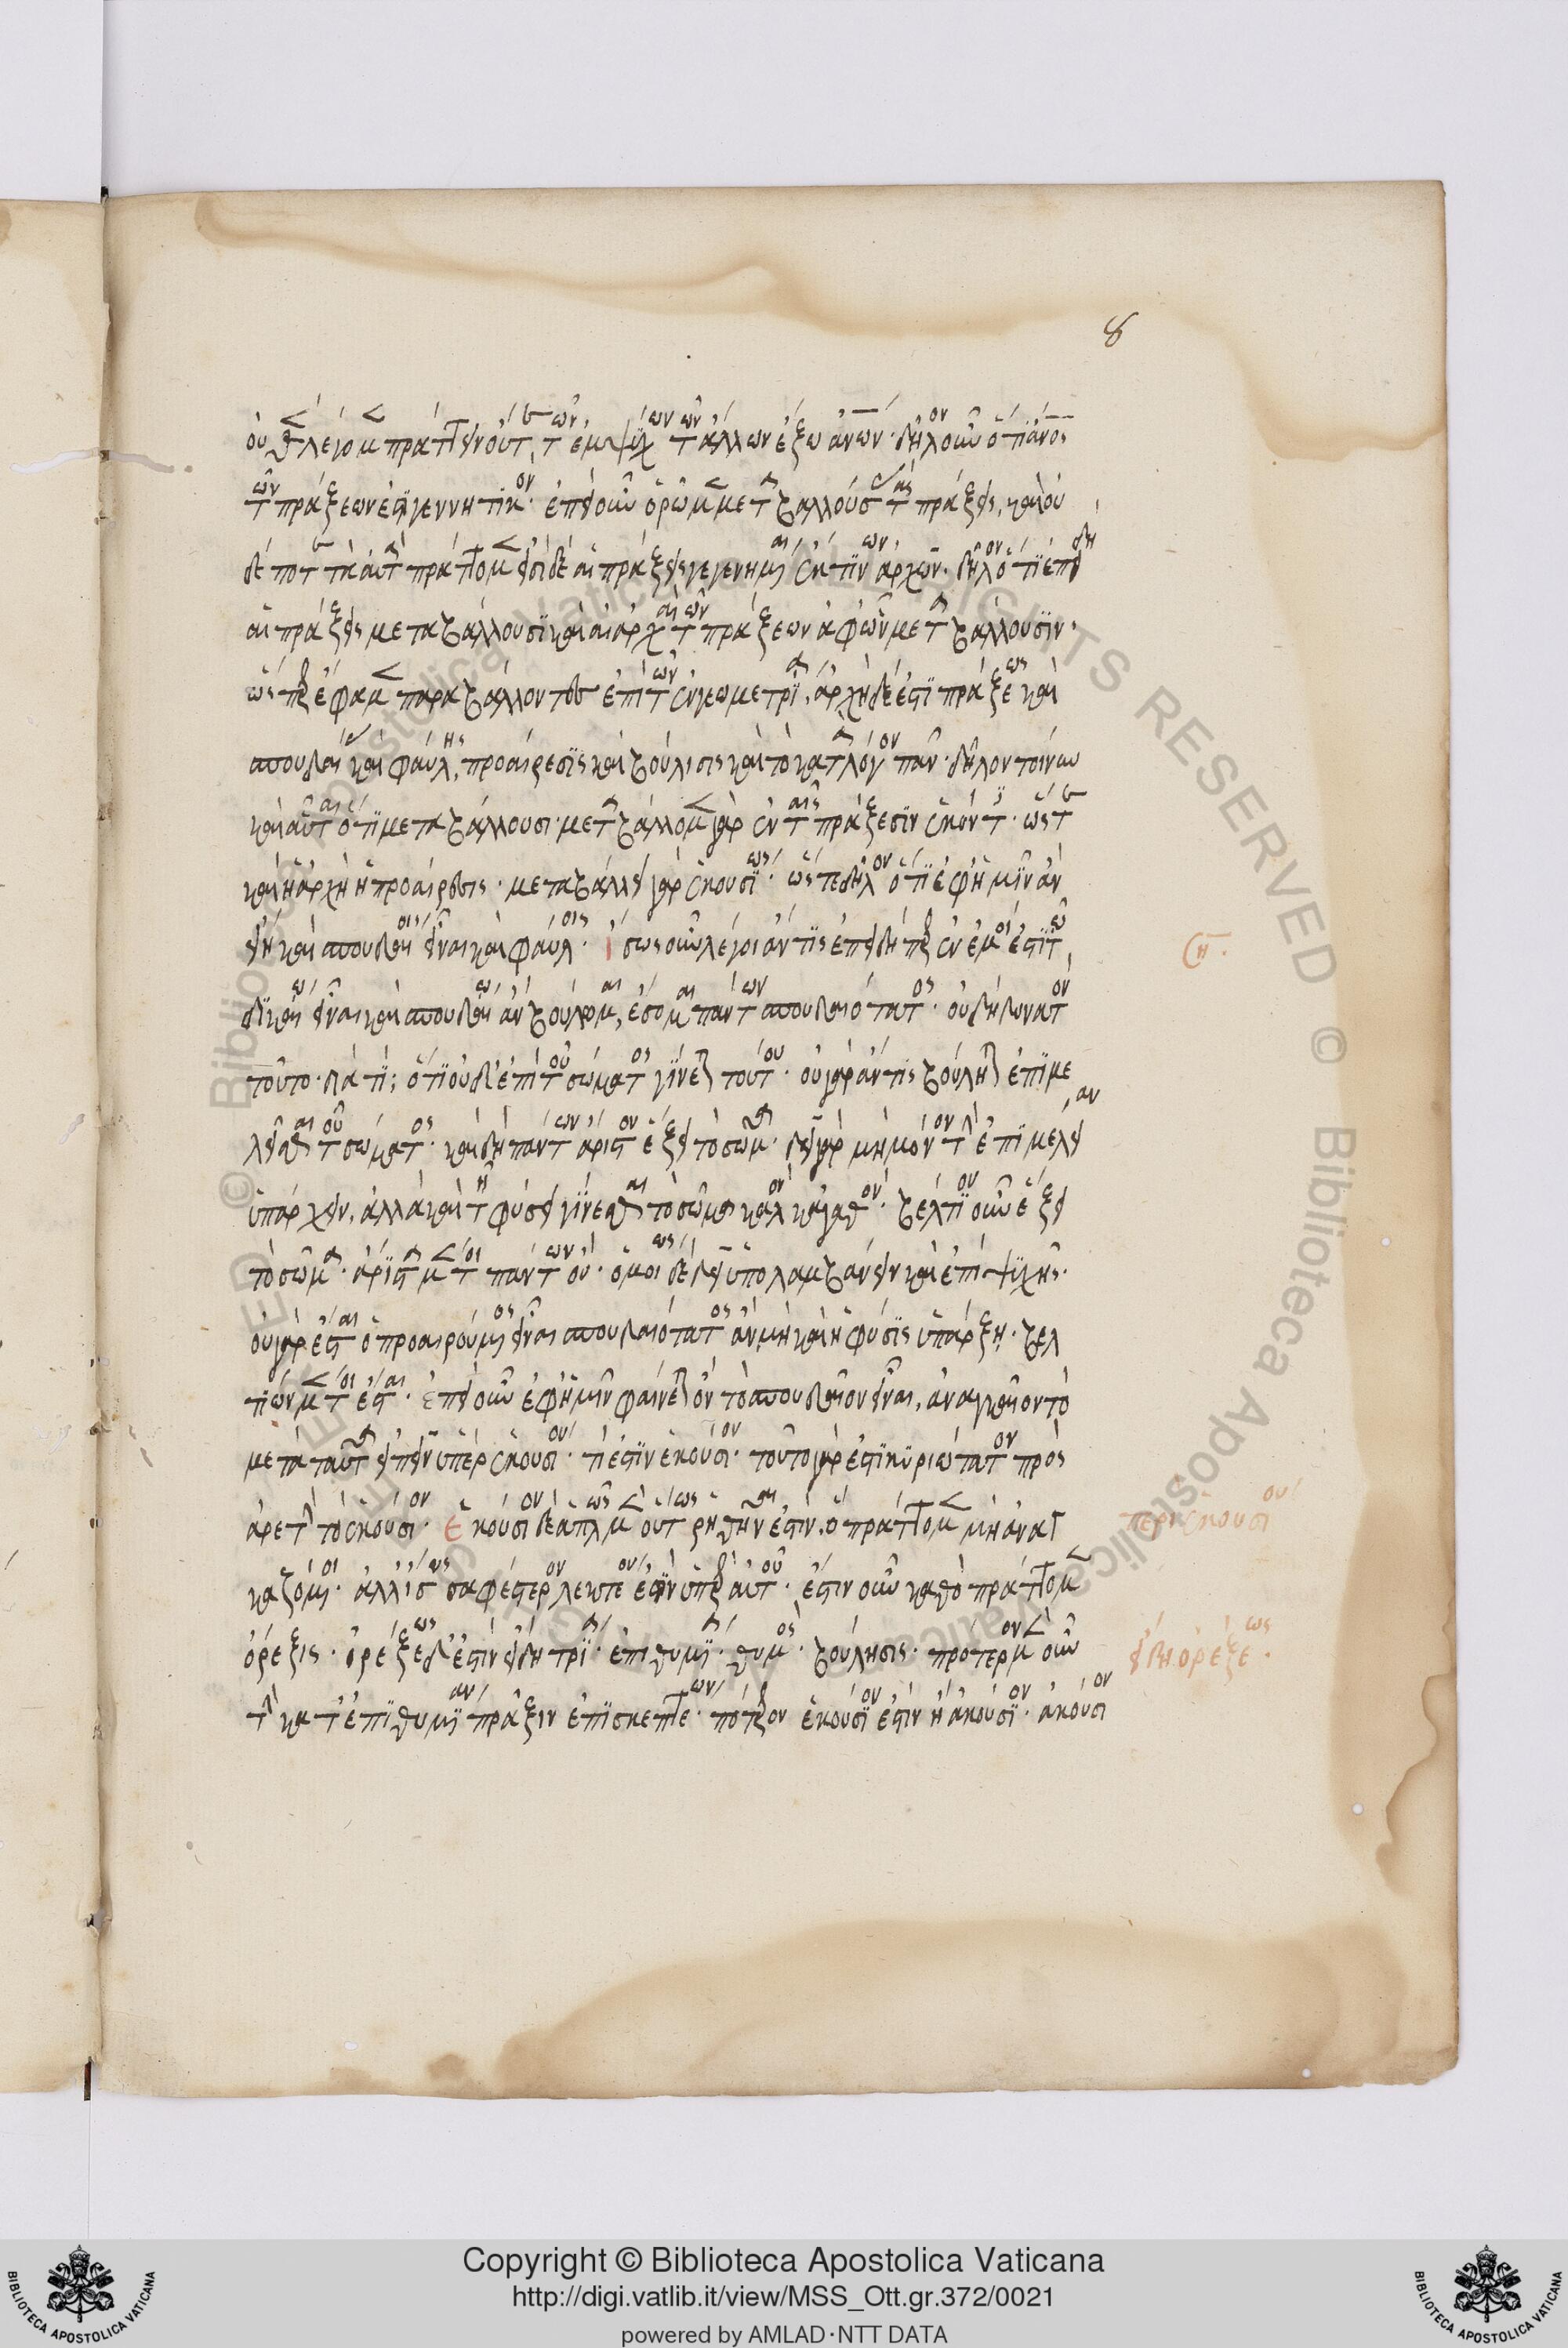 οὐθὲν λέγομεν πράττειν οὔτε τῶν ἐμψύχων τῶν ἄλλων ἔξω ἀνων· δῆλον οὖν ὅτι ἄνος
τῶν πράξεων ἐστὶ γεννητικόν· ἐπεὶ οὖν ὁρῶμεν μεταβαλλούσας τὰς πράξεις, καὶ οὐ
δέποτε τὰ αὐτὰ πράττομεν εἰσὶ δὲ αἱ πράξεις γεγενημέναι ἔκ τινων ἀρχῶν· δῆλον ὅτι ἐπειδὴ
αἱ πράξεις μεταβάλλουσι καὶ αἱ ἀρχαὶ τῶν πράξεων ἀφ' ὧν μεταβάλλουσιν·
ὥσπερ ἔφαμεν παραβάλλοντες ἐπὶ τῶν ἐν γεωμετρία, ἀρχὴ δέ ἐστι πράξεως καὶ
σπουδαίας καὶ φαύλης, προαίρεσις καὶ βούλισις καὶ τὸ κατὰ λόγον πᾶν· δῆλον τοίνυν
καὶ αὗται ὅτι μεταβάλλουσι· μεταβάλλομεν γὰρ ἐν ταῖς πράξεσιν ἑκόντες· ὥστε
καὶ ἡ ἀρχὴ ἡ προαίρεσις· μεταβάλλει γὰρ ἑκουσίως· ὥστε δῆλον ὅτι ἐφ' ἡμῖν ἂν
εἴη καὶ σπουδαίοις εἶναι καὶ φαύλοις· ἴσως οὖν λέγοι ἄν τις ἐπειδήπερ ἐν ἐμοί ἐστι τῶ
δικαίω εἶναι καὶ σπουδαίω ἂν βούλωμαι, ἔσομαι πάντων σπουδαιότατος· οὐ δὴ δυνατὸν
τοῦτο· διὰ τί; ὅτι οὐδ' ἐπὶ τοῦ σώματος γίνεται τοῦτο· οὐ γὰρ ἄν τις βούληται ἐπιμε
λεῖσθαι τοῦ σώματος· καὶ δὴ πάντων ἄριστον ἕξει τὸ σῶμα· δεῖ γὰρ μὴ μόνον τὴν ἐπιμέλειαν
ὑπάρχειν, ἀλλὰ καὶ τῆ φύσει γίνεσθαι τὸ σῶμα καλὸν κἀγαθόν· βέλτιον οὖν ἕξει
τὸ σῶμα· ἄριστα μέντοι πάντων οὔ· ὁμοίως δὲ δεῖ ὑπολαμβάνειν καὶ ἐπὶ ψυχῆς·
οὐ γὰρ ἔσται ὁ προαιρούμενος εἶναι σπουδαιότατος ἂν μὴ καὶ ἡ φύσις ὑπάρξη· βελ
τίων μέντοι ἔσται· ἐπεὶ οὖν ἐφ' ἡμῖν φαίνεται ὂν τὸ σπουδαῖον εἶναι, ἀναγκαῖον τὸ
μετὰ ταῦτα εἰπεῖν ὑπὲρ ἑκουσίου· τί ἐστιν ἑκούσιον· τοῦτο γάρ ἐστι κυριώτατον πρὸς
ἀρετὴν τὸ ἑκούσιον· Ἑκούσιον δὲ ἁπλῶς μὲν οὕτως ῥηθῆναί ἐστιν, ὃ πράττομεν μὴ ἀναγ
καζόμενοι· ἀλλ' ἴσως σαφέστερον λεκτέον ἐστὶν ὑπὲρ αὐτοῦ· ἔστιν οὖν καθὸ πράττομεν
ὄρεξις· ὀρέξεως δ' ἐστὶν εἴδη τρία· ἐπιθυμία· θυμὸς· βούλησις· πρότερον μὲν οὖν
τὴν κατ' ἐπιθυμίαν πρᾶξιν ἐπισκεπτέον· πότερον ἑκούσιόν ἐστιν ἢ ἀκούσιον· ἀκούσιον
περὶ ἑκουσίου
εἴδη ὀρέξεως·
8
Copyright © Biblioteca Apostolica Vaticana
http://digi.vatlib.it/view/MSS_Ott.gr.372/0021
powered by AMLAD·NTT DATA
BIBLIOTECA APOSTOLICA VATICANA
BIBLIOTECA APOSTOLICA VATICANA